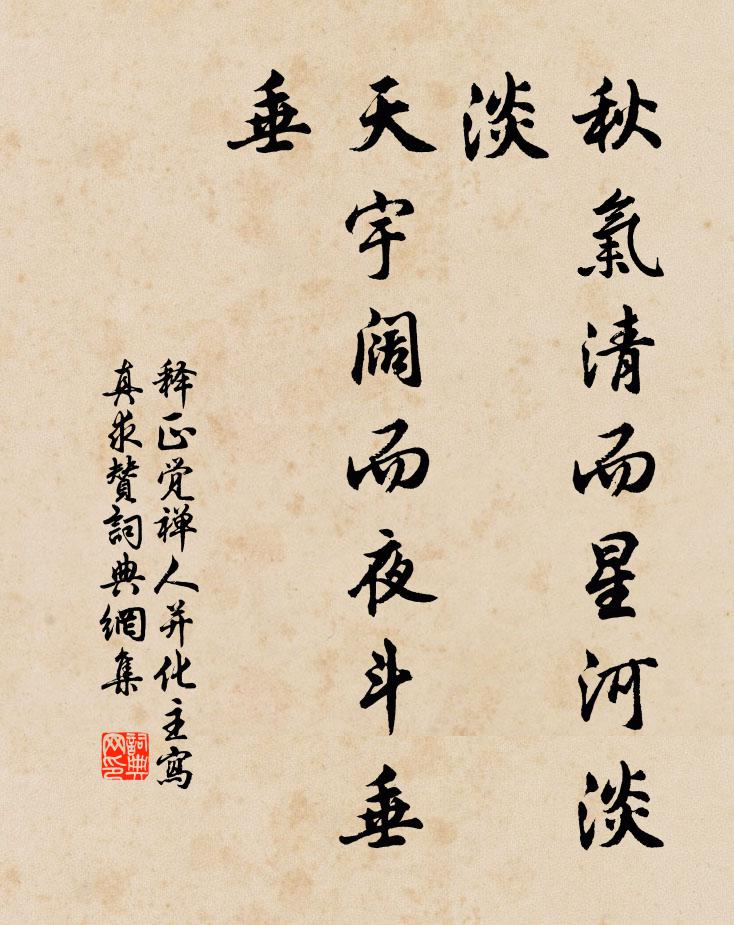 秋氣清而星河淡
淡
天宇阔而夜斗垂
垂
释正觉禅人并化主寫
真求赞詞典網集
詞典
网印